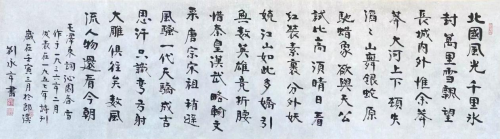 北國風光千里冰
封萬里雪飄望
長城內外惟余莽
莽大河上下頓失
滔滔山舞銀蛇原
馳蠟象欲與天公
試比高須晴日看
紅裝素裹分外妖
嬈江山如此多嬌引
無數英雄競折腰
惜秦皇漢武略輸文
采唐宗宋祖稍遜
風騷一代天驕成吉
思汗只識彎弓射
大雕俱往矣數風
流人物還看今朝
毛澤東詞沁園春雪
作于一九三六年二月
表在一九五七年詩刊
歲在壬寅三月於
劉永書